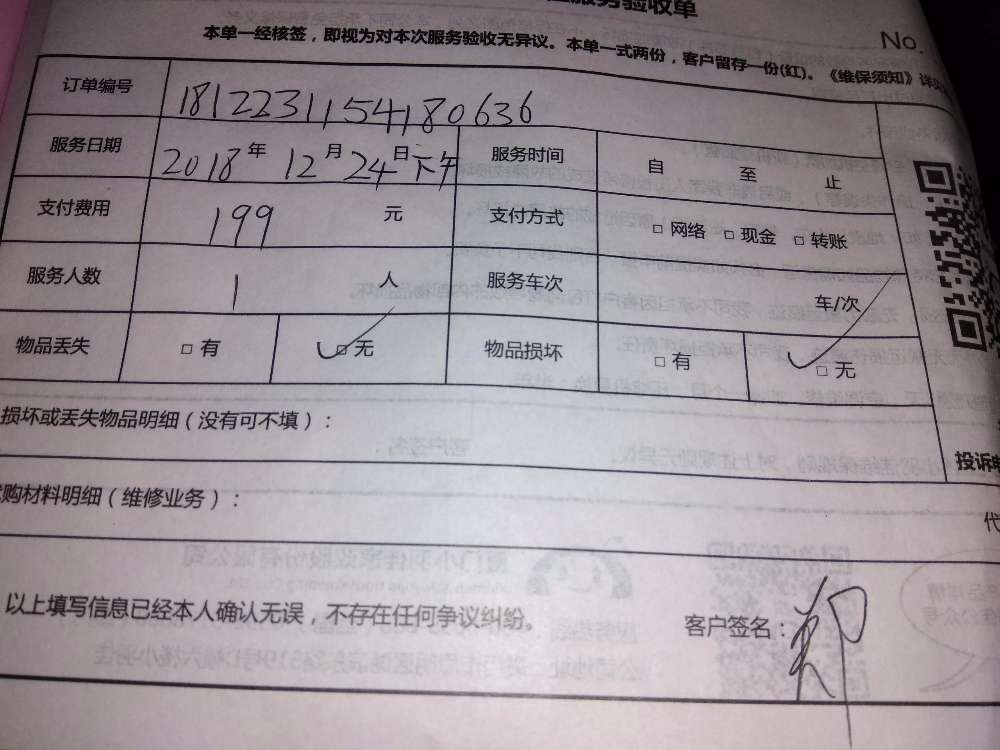 服务验收单
No.
本单一经核签，即视为对本次服务验收无异议。本单一式两份，客户留存一份(红)。《维保须知》详
订单编号 1812231154180636
服务日期 2018年 12月 24日下午 服务时间 自 至 止
支付费用 199 元 支付方式 □网络 □现金 □转账
服务人数 1 人 服务车次 车/次
物品丢失 □有 □无 物品损坏 □有 □无
损坏或丢失物品明细（没有可不填）：
投诉
购材料明细（维修业务）：
代
以上填写信息已经本人确认无误，不存在任何争议纠纷。 客户签名：郑